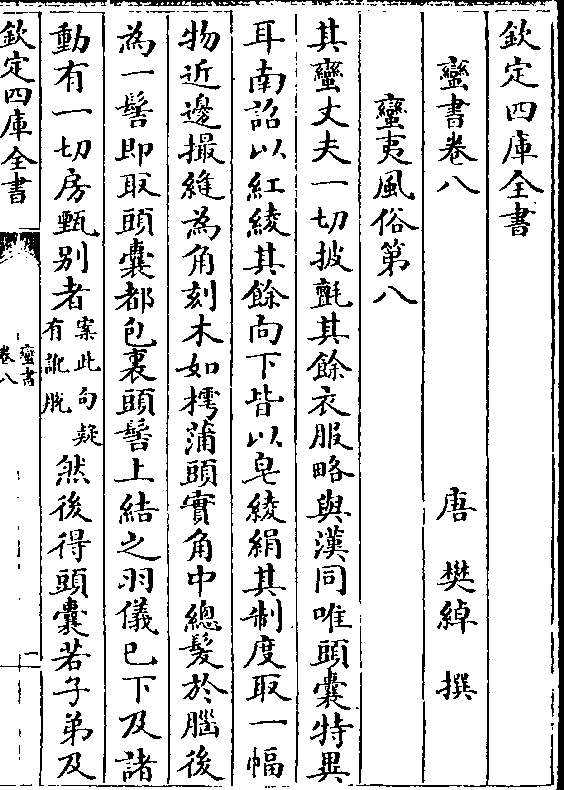 欽定四庫全書
蠻書卷八
唐 樊綽 撰
蠻夷風俗第八
其蠻丈夫一切披氈其餘衣服略與漢同唯頭囊特異
耳南詔以紅綾其餘向下皆以皂綾絹其制度取一幅
物近邊撮縫為角刻木如樗蒲頭實角中總髮於腦後
為一髻即取頭囊都包裹頭髻上結之羽儀已下及諸
動有一切房甄别者案此句疑有訛脱然後得頭囊若子弟及
欽定四庫全書
蠻書
卷八
一